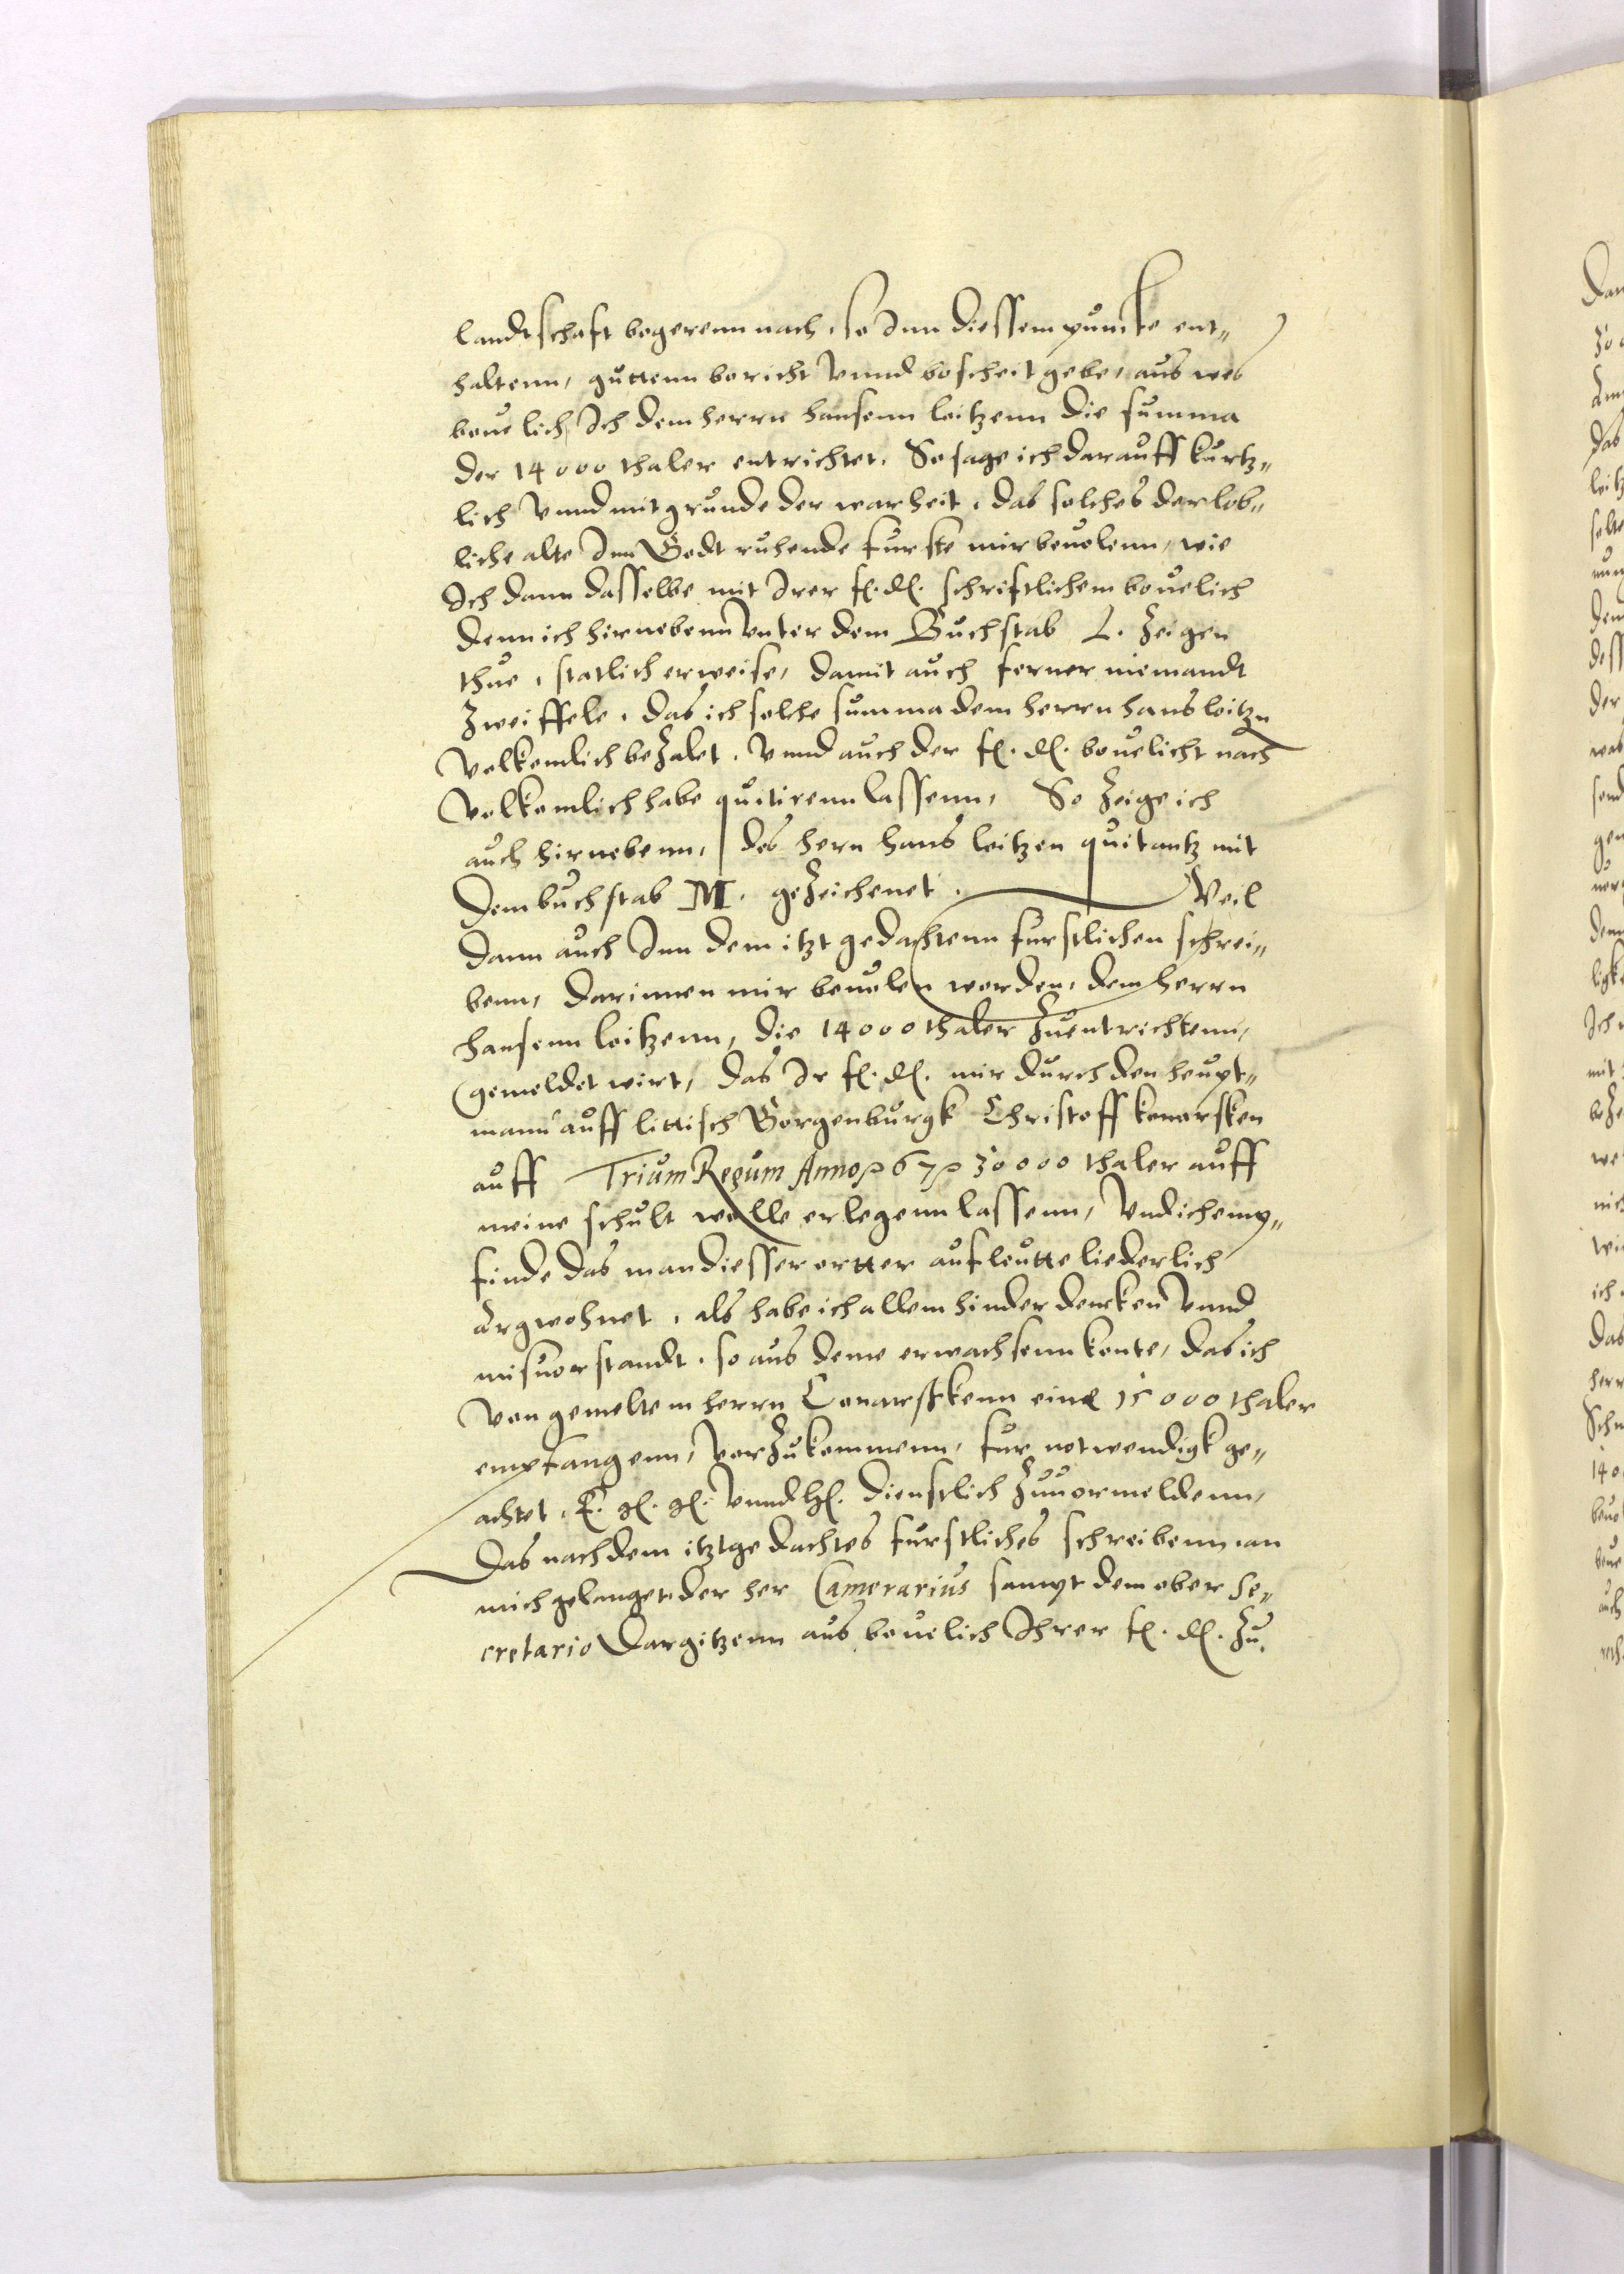 landtschaft begerenn nach, so Inn diessem puncte ent„
haltenn, guttenn bericht vnnd bescheit gebe, aus wes
beuelich, Ich dem herrn hansenn leitzenn die summa
der 14000 thaler entrichtet. So sage ich darauff kurtz„
lich vnnd mit grunde der warheit, das solches der lob„
liche alte Inn Godt ruhende furste mir beuolenn, wie
Ich dann dasselbe mit Irer f. d. schriftlichem beuelich
denn ich hirnebenn vnter dem Buchstab L. Zeigen
thue, statlich erweise, damit auch ferner niemandt
Zweiffele, das ich solche summa dem herrn hans leitzn
volkemlich beZalet, vnnd auch der f. d. beuelicht nach
volkomlich habe quitirenn lassenn, So Zeige ich
auch hirnebenn, des hern hans leitzen quitantz mit
dem buchstab M. geZeichenet. Weil
dann auch Inn dem itzt gedachtenn furstlichen schrei„
benn, darinnen mir beuolen worden, dem herrn
hansenn leitzenn, die 14000 thaler Zuentrichtenn,
gemeldet wirt, das Ir f. d. mir durch den heupt„
mann auff littisch Gorgenburgk Christoff konarsken
auff Trium Regum Anno p 67 p 30000 thaler auff
meine schult wolle erlegenn lassenn, Vnd ich emp„
finde das man diesser ortter auf leutte liederlich
Argwohnet, als habe ich allem hinderdencken vnnd
misuorstandt, so aus deme erwachsenn konte, das ich
von gemeltem herrn Conarskenn eine 15000 thaler
empfangenn, vorZukommenn, fur notwendigk ge„
achtet, E. g. g. vnnd h. dienstlich Zuuormeldenn,
Das nachdem itztgedachtes furstliches schreibenn an
mich gelanget, der her Camerarius sampt dem ober Se„
cretario Dargitzenn aus beuelich Ihrer f. d. Zu